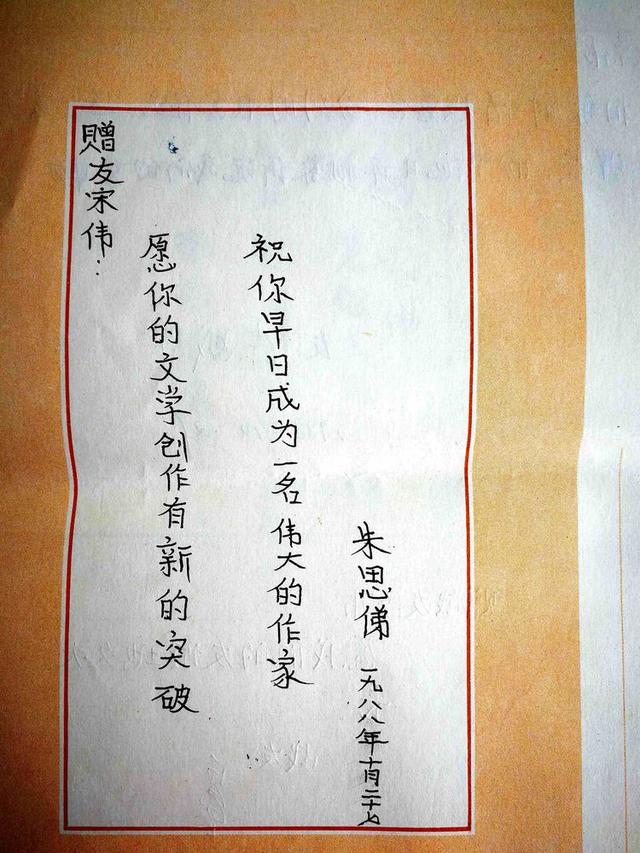 赠友宋伟：
愿你的文学创作有新的突破
祝你早日成为一名伟大的作家
朱思俤 一九八八年十月二十七